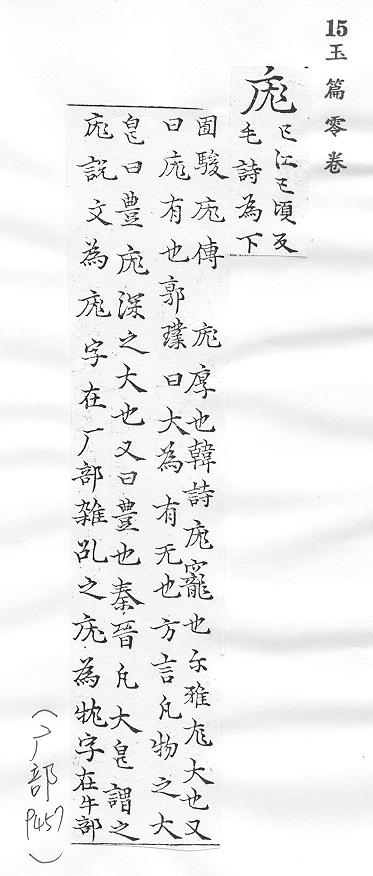 15
玉篇零卷
庬
亡江亡項反
毛詩為下
國駿庬傳 庬厚也韓詩庬寵也尓雅庬大也又
曰庬有也郭璞曰大為有无也方言凡物之大
皃曰豊庬深之大也又曰豊也秦晉凡大皃謂之
庬說文為庬字在厂部雜乱之庬為牻字在牛部
(厂部
P457)